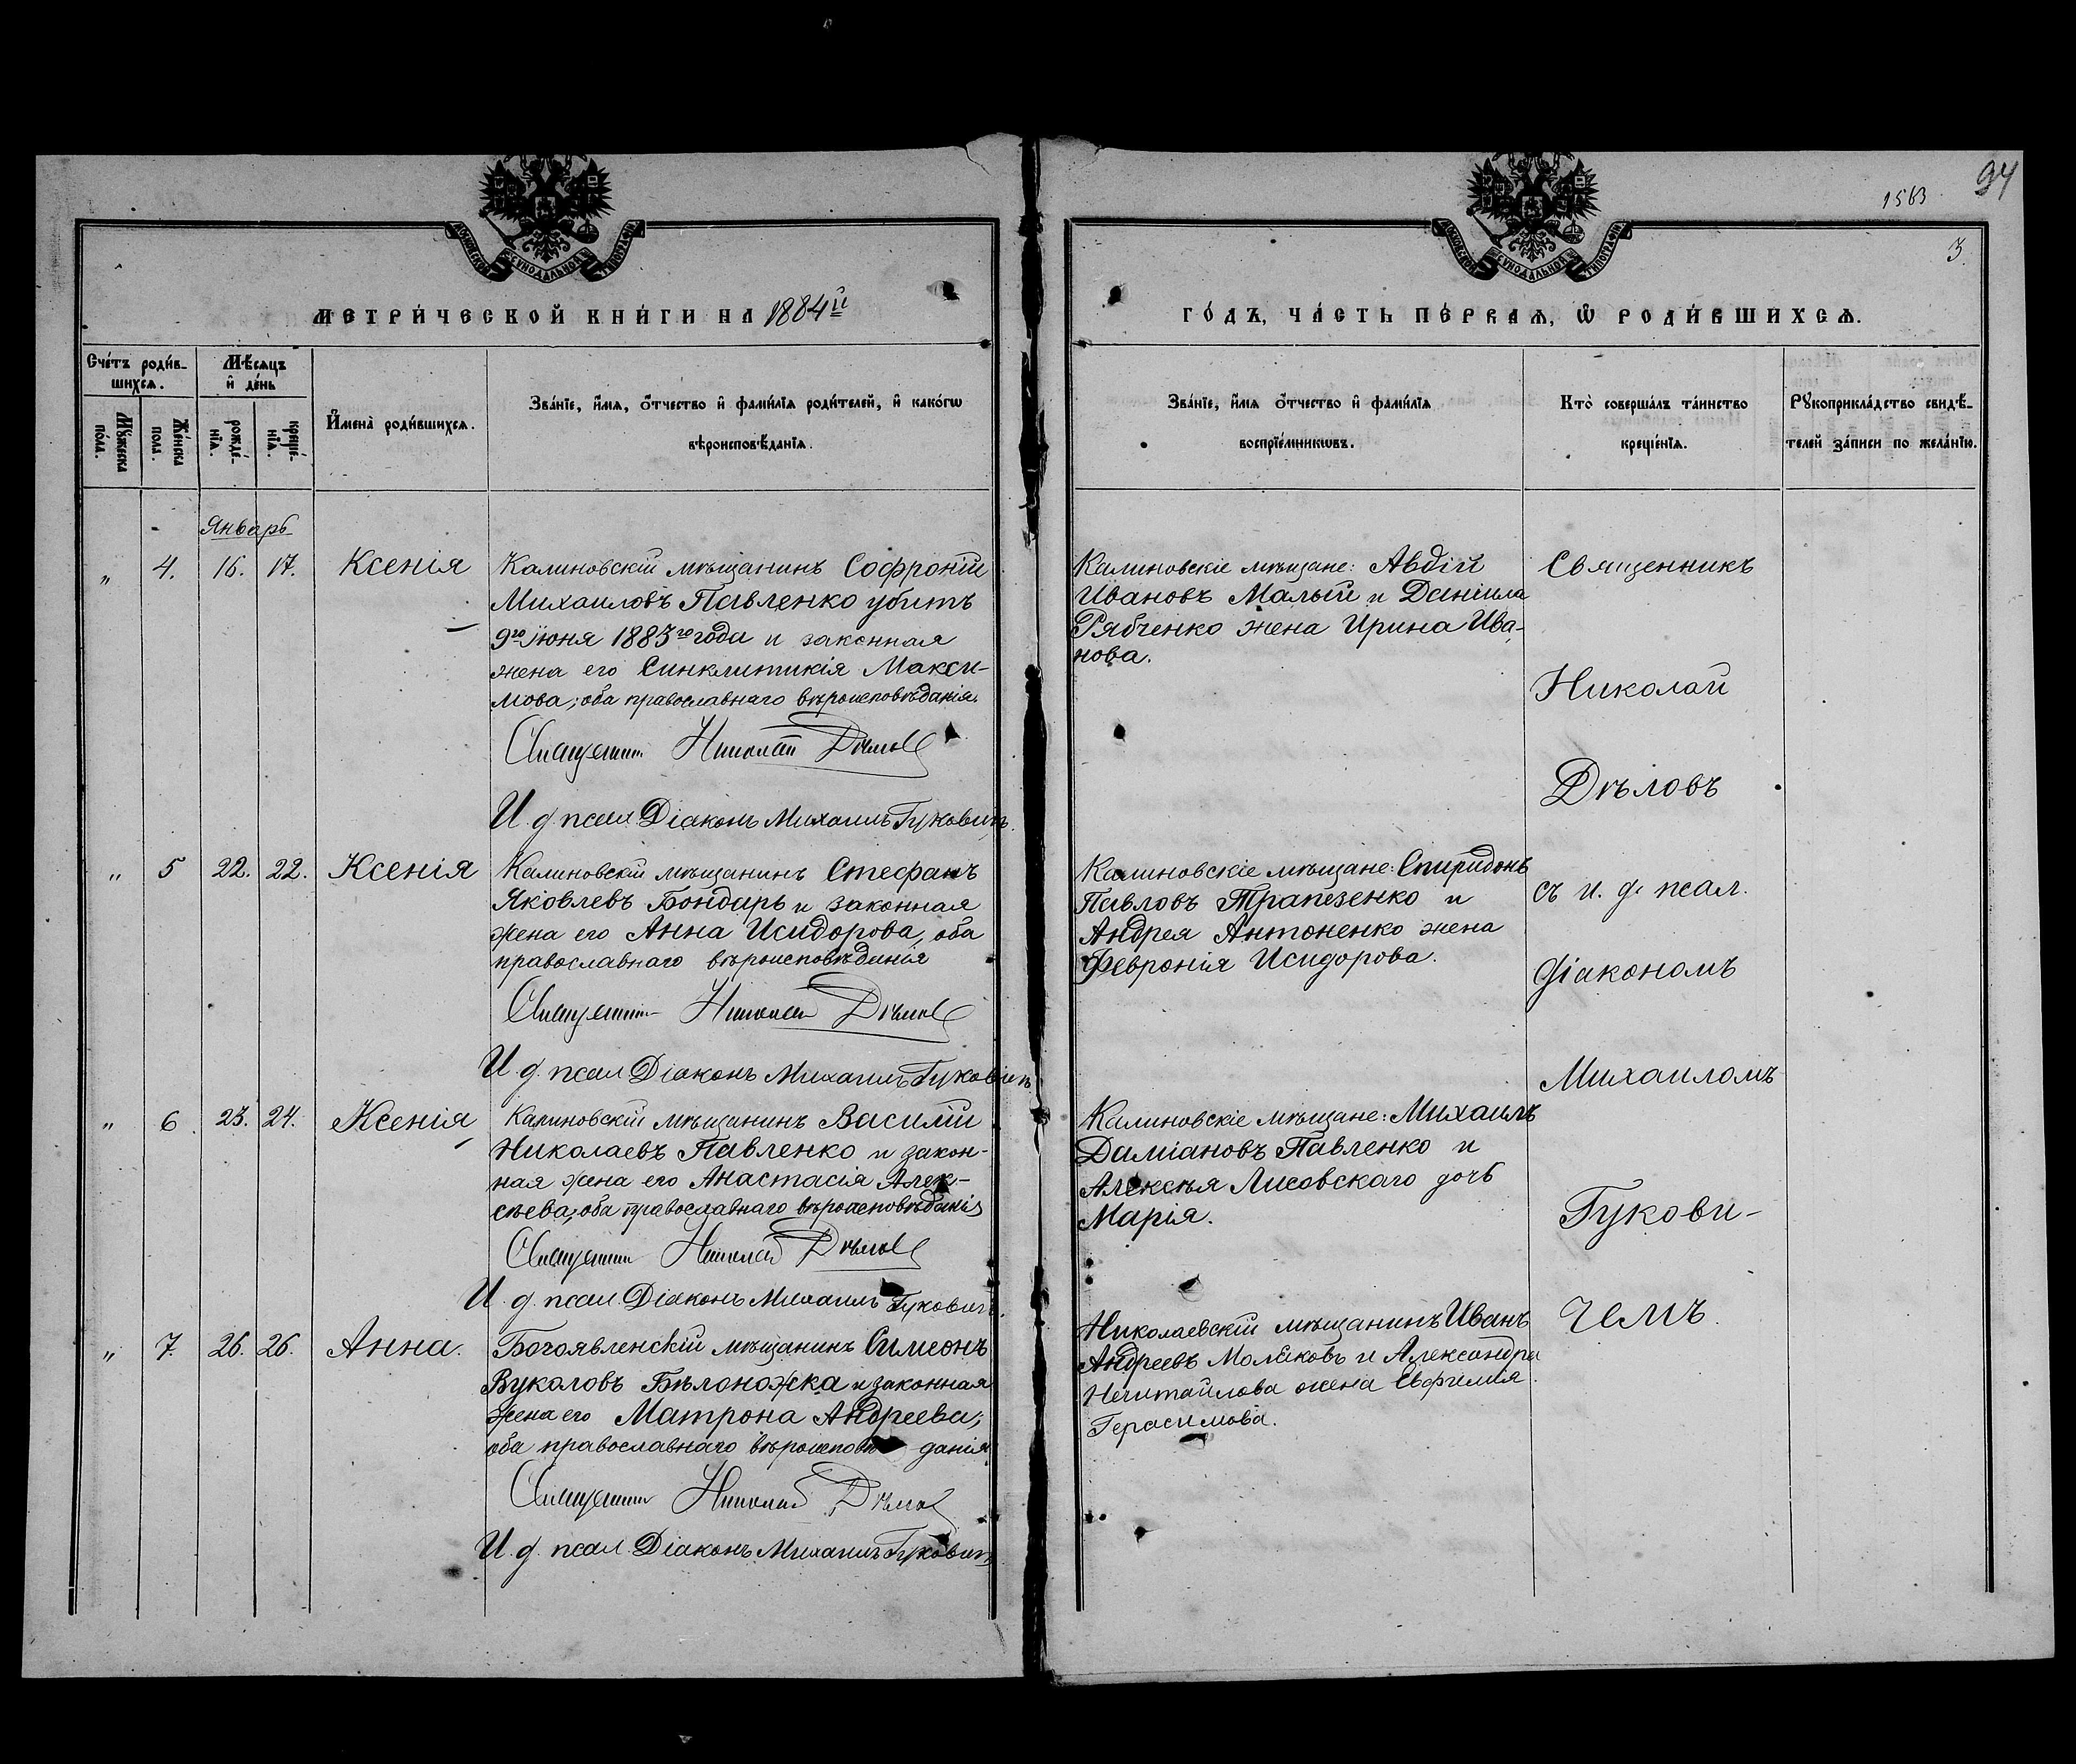 94
1563
3.
МОСКОВСКОЙ СѴНОДАЛЬНОЙ ТИПОГРАФІИ
МОСКОВСКОЙ СѴНОДАЛЬНОЙ ТИПОГРАФІИ
МЕТРИ́ЧЕСКОЙ КНИ́ГИ НА 1884й
ГО́ДЪ, ЧА́СТЬ ПЕ́РВАѦ, Ѡ РОДИ́ВШИХСѦ.
Сче́тъ роди́в-
шихсѧ.
Мꙋ́жеска по́ла.
Же́нска по́ла.
Мѣ́сѧцъ
и҆ де́нь
рожде́-
нїѧ.
креще́-
нїѧ.
И҆мена̀ роди́вшихсѧ.
Зва́нїе, и҆́мѧ, ѻ҆́тчество и҆ фами́лїѧ роди́телей, и҆ како́гѡ
вѣроисповѣ́данїѧ.
Зва́нїе, и҆́мѧ ѻ҆́тчество и҆ фами́лїѧ
воспрїе́мникѡвъ.
Кто̀ соверша́лъ та́инство
креще́нїѧ.
Рꙋкоприкла́дство свидѣ́-
телей за́писи по жела́нїю.
Январь
„ 4. 16. 17. Ксенія
Калиновскій мѣщанинъ Софроній
Михаиловъ Павленко убитъ
9го іюня 1883го года и законная
жена его Синклитикія Макси-
мова; оба православнаго вѣроисповѣданія.
Священникъ Николай Дѣловъ
И. д. псал. Діаконъ Михаилъ Гуковичъ.
Калиновскіе мѣщане: Авдій
Ивановъ Малый и Даніила
Рябченко жена Ирина Ива-
нова.
„ 5 22. 22. Ксенія
Калиновскій мѣщанинъ Стефанъ
Яковлевъ Бондарь и законная
жена его Анна Исидорова, оба
православнаго вѣроисповѣданія
Священникъ Николай Дѣловъ
И. д. псал. Діаконъ Михаилъ Гуковичъ
Калиновскіе мѣщане: Спиридонъ
Павловъ Трапезенко и
Андрея Антоненко жена
Февронія Исидорова.
„ 6. 23. 24. Ксенія
Калиновскій мѣщанинъ Василій
Николаевъ Павленко и закон-
ная жена его Анастасія Алек-
сѣева, оба православнаго вѣроисповѣданія
Священникъ Николай Дѣловъ
И. д. псал. Діаконъ Михаилъ Гуковичъ.
Калиновскіе мѣщане: Михаилъ
Даміановъ Павленко и
Алексѣя Лисовскаго дочь
Марія.
„ 7. 26. 26. Анна.
Богоявленскій мѣщанинъ Симеонъ
Вуколовъ Бѣлоножка и законная
жена его Матрона Андреева;
оба православнаго вѣроисповѣ данія.
Священникъ Николай Дѣловъ
И. д. псал. Діаконъ Михаилъ Гуковичъ
Николаевскій мѣщанинъ Иванъ
Андреевъ и Александра
Нечитайлова жена Евфимія
Герасимова.
Священникъ
Николай
Дѣловъ
съ и. д. псал.
діакономъ
Михаиломъ
Гукови-
чемъ.